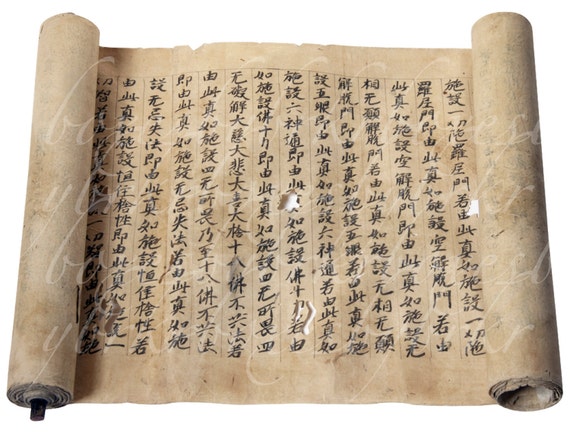 施設一切陁羅尼門若由此真如施設一切陁
羅尼門即由此真如施設空解脫門若由
此真如施設空解脫門即由此真如施設无
相无願解脫門若由此真如施設无相无願
解脫門即由此真如施設五眼若由此真如施
設五眼即由此真如施設六神通若由此真如
施設六神通即由此真如施設佛十力若由
如施設佛十力即由此真如施設四无所畏四
无礙解大慈大悲大喜大捨十八佛不共法若
由此真如施設四无所畏乃至十八佛不共法
即由此真如施設无忘失法若由此真如施
設无忘失法即由此真如施設恒住捨性若
由此真如施設恒住捨性即由此真如施設一
切智若由此真如一切智即由此真如施